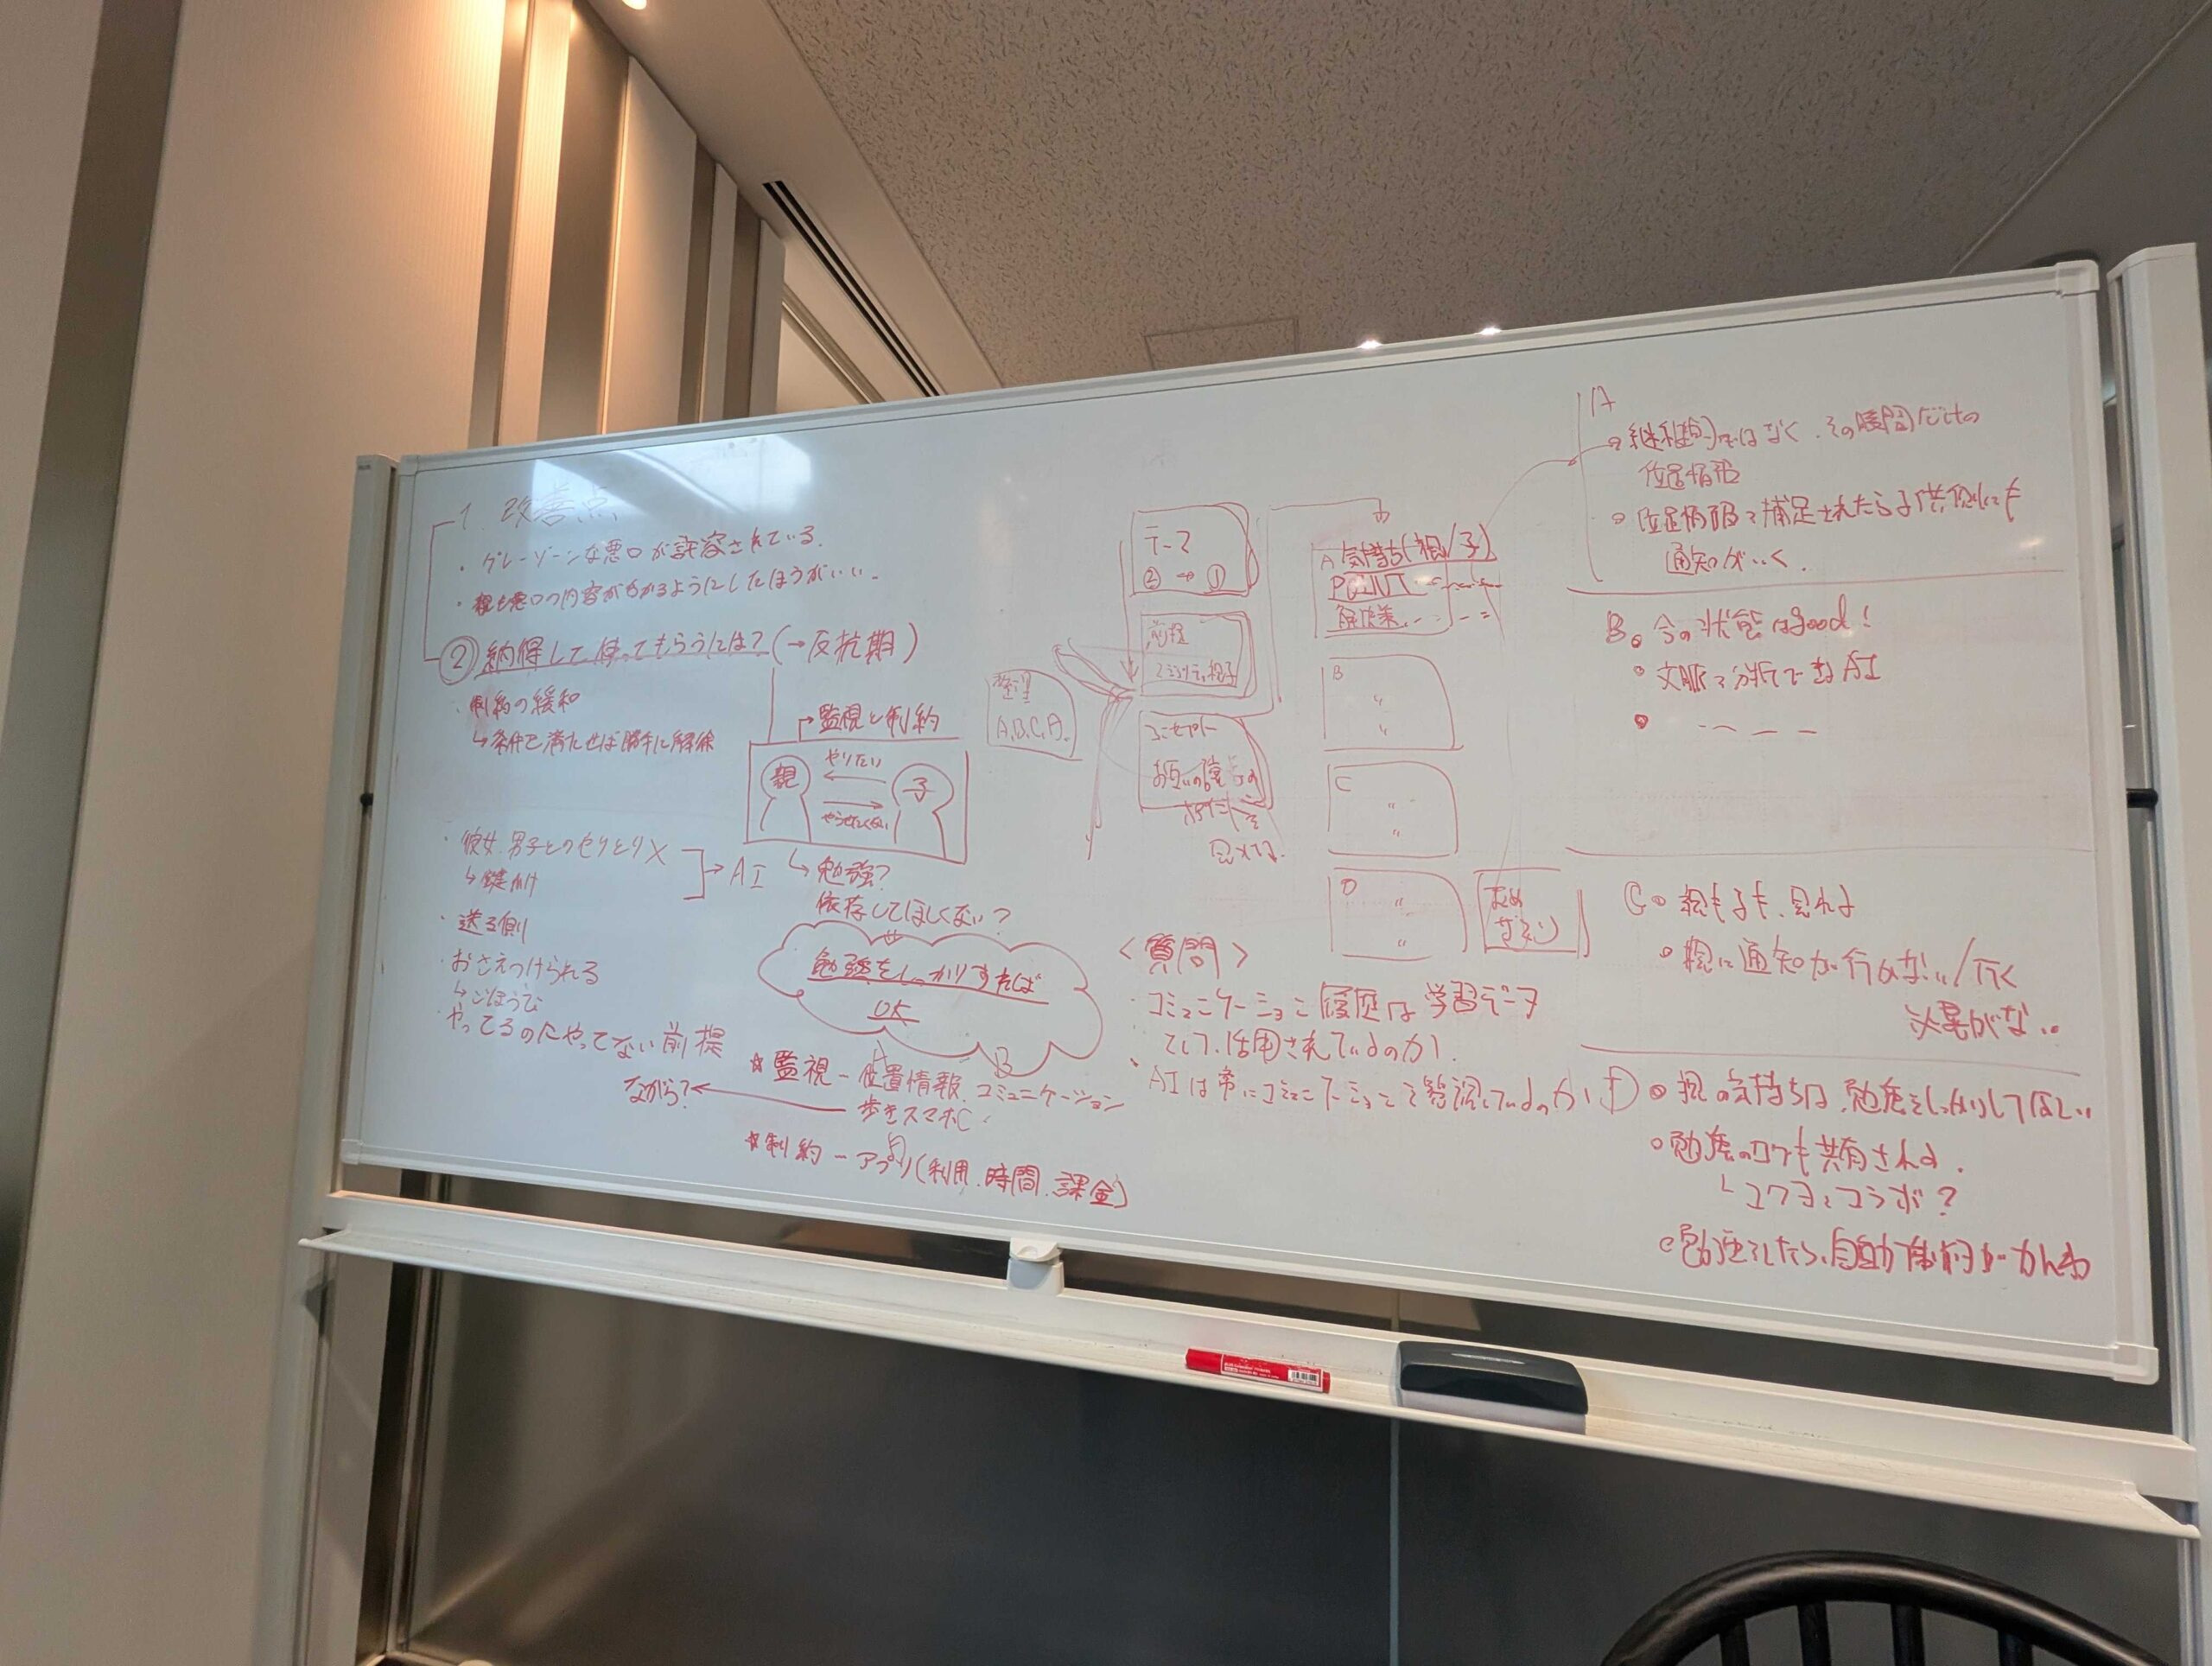 1. 改善点
・グレーゾーンな悪口が許容されている.
・親も悪口の内容がわかるようにしたほうがいい.
② 納得して使ってもらうには?(→反抗期)
・制約の緩和
↳条件を満たせば勝手に解除
↱監視と制約
親
やりたい
子
やらせたくない
・彼女.男子とのやりとり×
↳鍵かけ
→AI
↳勉強?
依存してほしくない?
・送る側
・おさえつけられる
↳ごほうび
・やってるのにやってない前提
勉強をしっかりすれば
OK
A
B
★監視-位置情報.コミュニケーション
歩きスマホC
ながら?
★制約-アプリ(利用.時間.課金)
D
テーマ
②→①
前提
整理
A.B.C.D.
コンセプト
お互いの
A 気持ち(親/子)
POINT
解決案
B
〃
〃
C
〃
〃
D
〃
〃
<質問>
・コミュニケーション履歴は学習データ
として、活用されているのか).
・AIは常にコミュニケーションを監視しているのか
A
継続的ではなく.その時間だけの
位置情報
位置情報で捕足されたら子供側にも
通知がいく.
B。今の状態はgood!
文脈で分析できるAI
C。親も子も、見れる
親に通知が行かない/行く
必要がない。
D
親の気持ちは、勉強をしっかりしてほしい
勉強のログも共有される.
└コクヨとコラボ?
勉強をしたら、自動で制約がかんわ